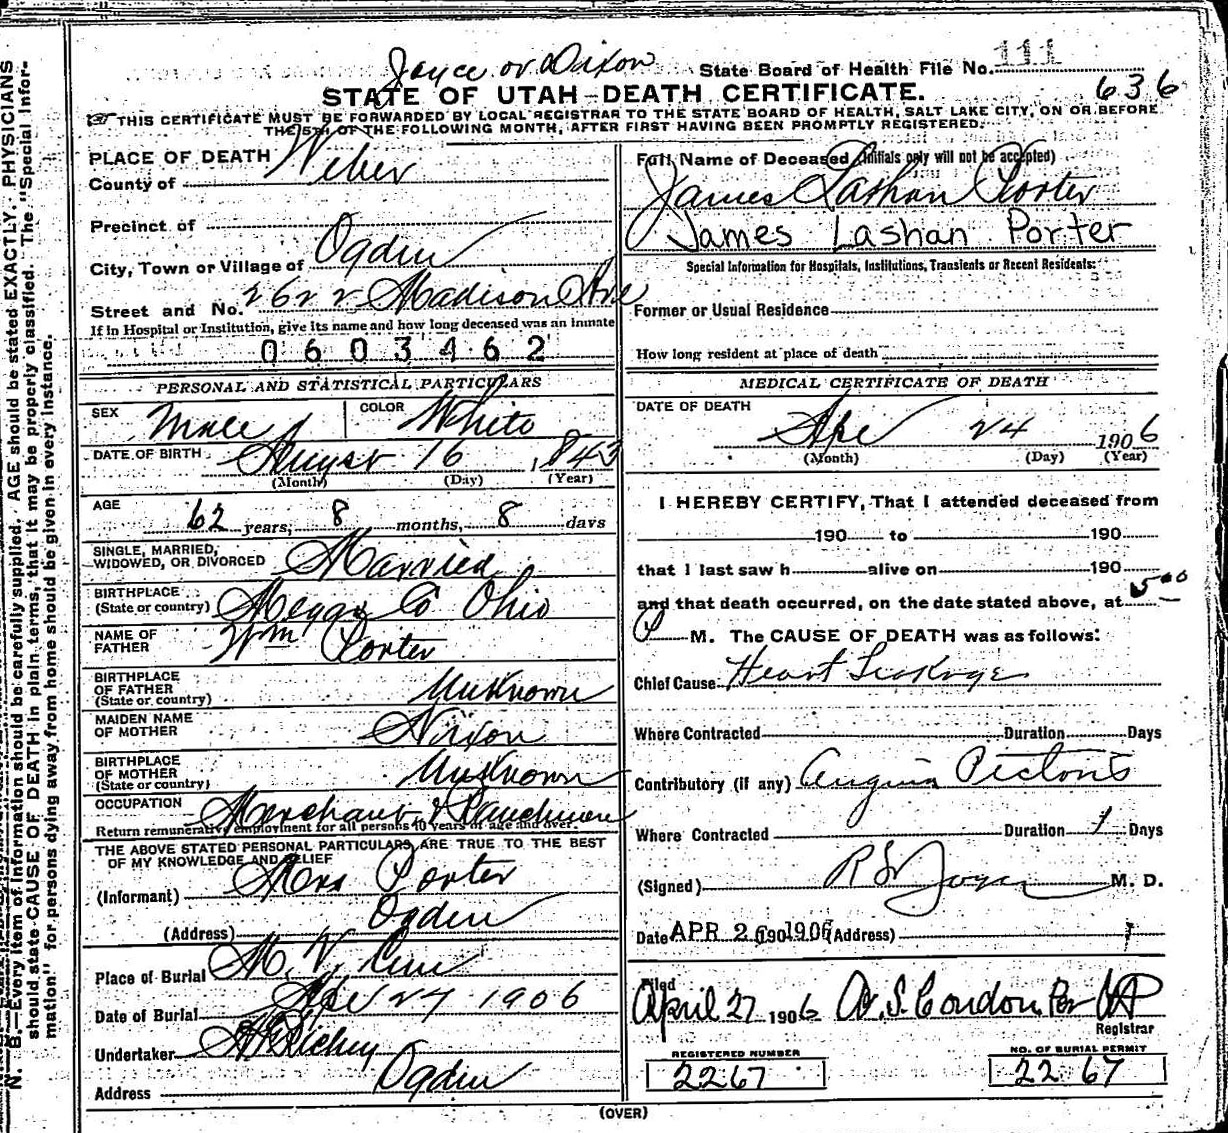 Joyce or Dixon
State Board of Health File No. 111
636
STATE OF UTAH—DEATH CERTIFICATE.
THIS CERTIFICATE MUST BE FORWARDED BY LOCAL REGISTRAR TO THE STATE BOARD OF HEALTH, SALT LAKE CITY, ON OR BEFORE
THE 5TH OF THE FOLLOWING MONTH, AFTER FIRST HAVING BEEN PROMPTLY REGISTERED.
N. B.—Every item of information should be carefully supplied. AGE should be stated EXACTLY. PHYSICIANS
should state CAUSE OF DEATH in plain terms, that it may be properly classified. The "Special Infor-
mation" for persons dying away from home should be given in every instance.
PLACE OF DEATH
County of Weber
Precinct of
City, Town or Village of Ogden
Street and No. 2622 Madison Ave
If in Hospital or Institution, give its name and how long deceased was an inmate
0603462
PERSONAL AND STATISTICAL PARTICULARS
SEX Male COLOR White
DATE OF BIRTH August 16, 1843
(Month) (Day) (Year)
AGE 62 years, 8 months, 8 days
SINGLE, MARRIED,
WIDOWED, OR DIVORCED Married
BIRTHPLACE
(State or country) Meggs Co Ohio
NAME OF
FATHER Wm Porter
BIRTHPLACE
OF FATHER
(State or country) Unknown
MAIDEN NAME
OF MOTHER Nixon
BIRTHPLACE
OF MOTHER
(State or country) Unknown
OCCUPATION Merchant & Ranchman
Return remunerative employment for all persons 10 years of age and over.
THE ABOVE STATED PERSONAL PARTICULARS ARE TRUE TO THE BEST
OF MY KNOWLEDGE AND BELIEF
(Informant) Mrs Porter
(Address) Ogden
Place of Burial M. V. Cem
Date of Burial Apr 27 1906
Undertaker Richey
Address Ogden
Full Name of Deceased (Initials only will not be accepted)
James Lashan Porter
James Lashan Porter
Special Information for Hospitals, Institutions, Transients or Recent Residents:
Former or Usual Residence
How long resident at place of death
MEDICAL CERTIFICATE OF DEATH
DATE OF DEATH
Apr 24 1906
(Month) (Day) (Year)
I HEREBY CERTIFY, That I attended deceased from
190 to 190
that I last saw h alive on 190
and that death occurred, on the date stated above, at 5 00
P M. The CAUSE OF DEATH was as follows:
Chief Cause Heart Leakage
Where Contracted Duration Days
Contributory (if any) Angina Pectoris
Where Contracted Duration 1 Days
(Signed) M. D.
Date APR 26 1906 (Address)
Filed
April 27 1906 A. S. Condon Per
Registrar
REGISTERED NUMBER
2267
NO. OF BURIAL PERMIT
2267
(OVER)